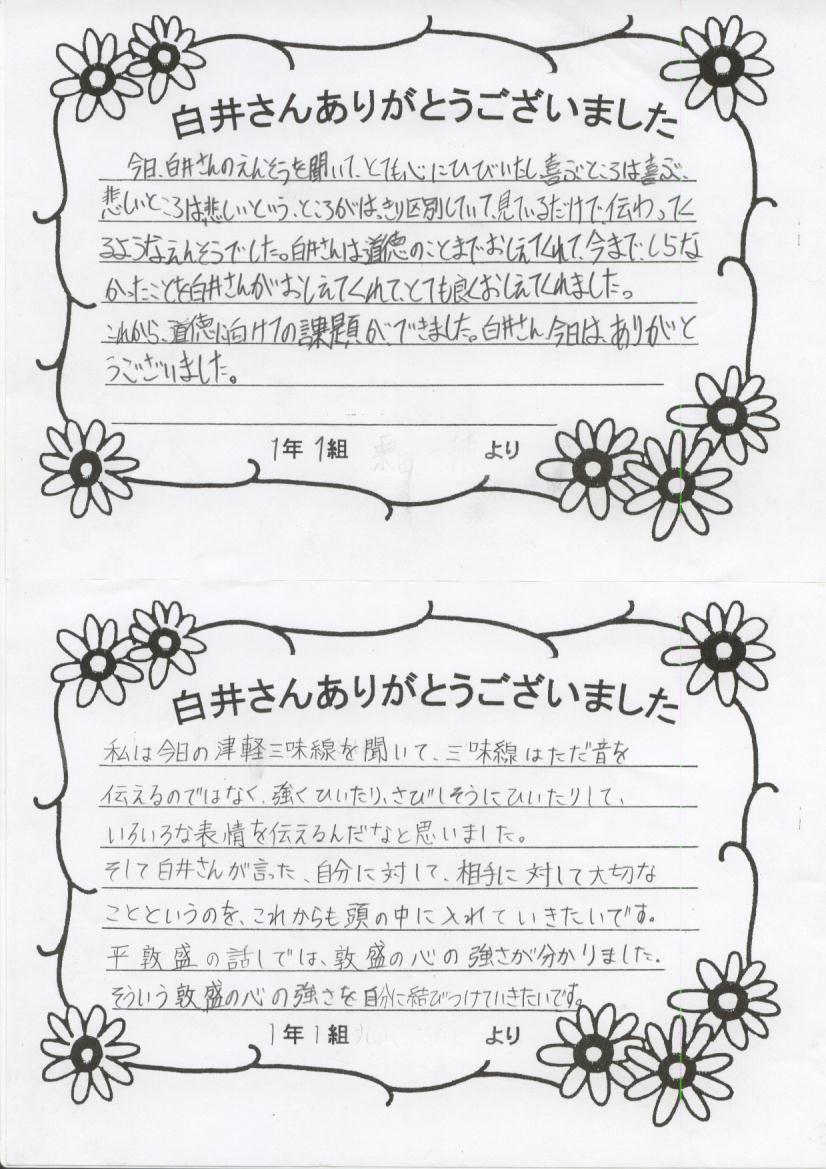 白井さんありがとうございました
今日、白井さんのえんそうを聞いて、とても心にひびいたし喜ぶところは喜ぶ、
悲しいところは悲しいという、ところがはっきり区別していて、見ているだけで、伝わってく
るようなえんそうでした。白井さんは道徳のことまでおしえてくれて、今まで、しらな
かったことを白井さんがおしえてくれて、とても良くおしえてくれました。
これから、道徳に向けての課題が、できました。白井さん、今日は、ありがと
うございました。
1年 1組 より
白井さんありがとうございました
私は今日の津軽三味線を聞いて、三味線はただ音を
伝えるのではなく、強くひいたり、さびしそうにひいたりして、
いろいろな表情を伝えるんだなと思いました。
そして白井さんが言った、自分に対して、相手に対して大切な
ことというのを、これからも頭の中に入れていきたいです。
平敦盛の話しでは、敦盛の心の強さが分かりました。
そういう敦盛の心の強さを自分に結びつけていきたいです。
1年 1組 より